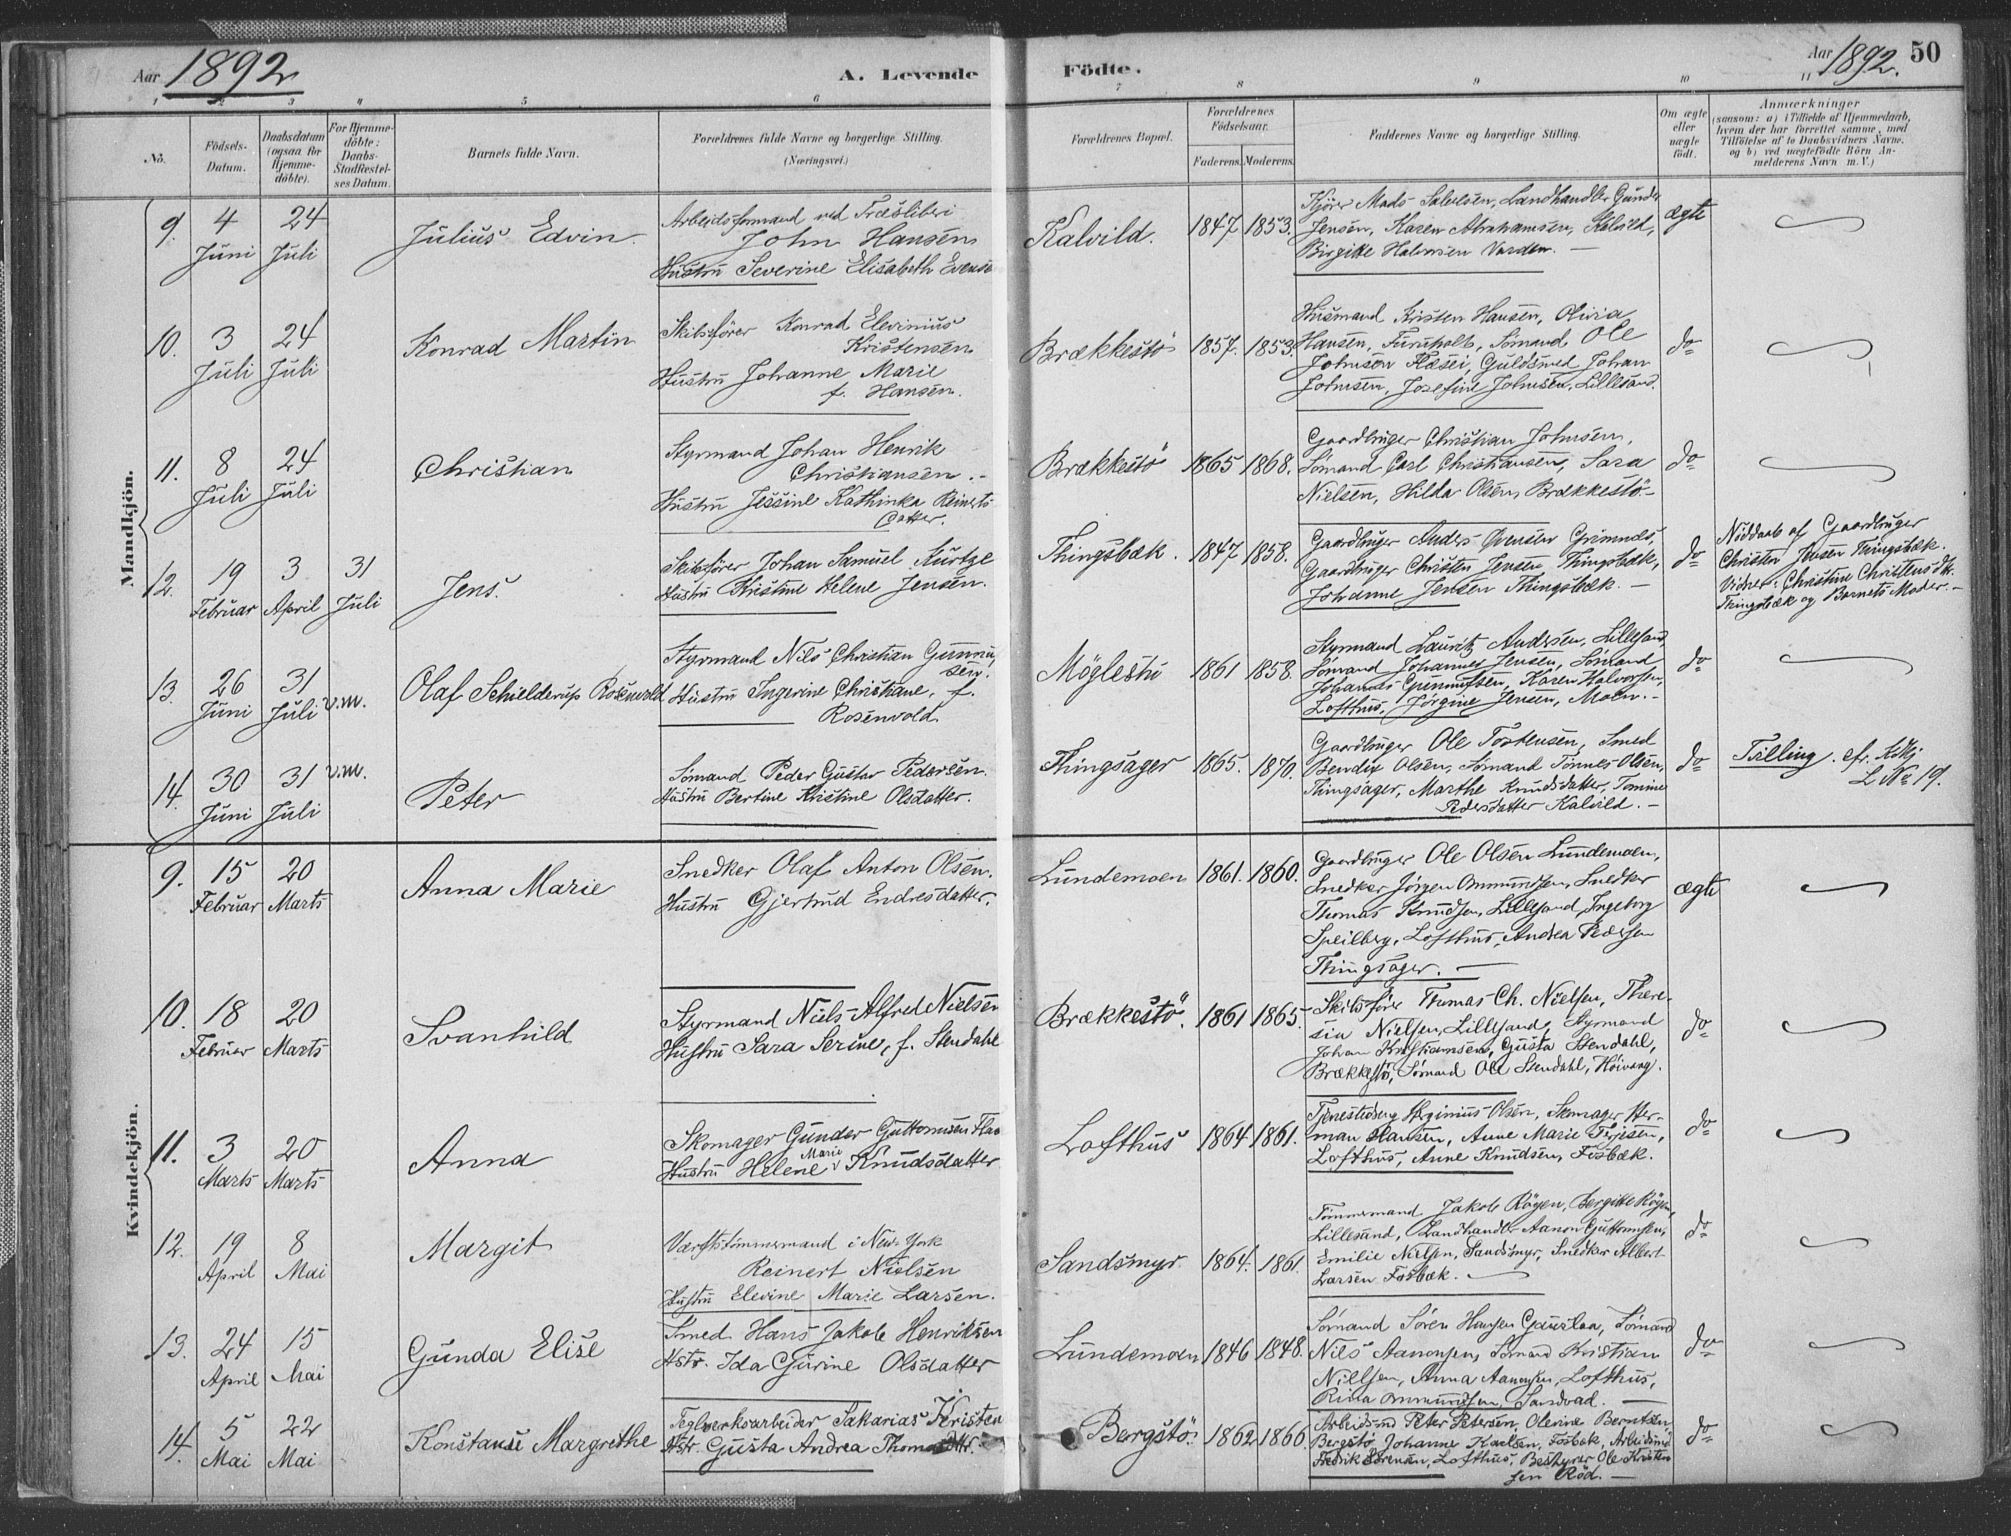 Aar 1892
A. Levende Födte.
Aar 1892. 50
1 2 3 4 5 6 7 8 9 10 11
No.
Födsels-
Datum.
Daabsdatum
(ogsaa for
Hjemme-
döbte).
For Hjemme-
döbte:
Daabs-
Stadfæstel-
ses Datum.
Barnets fulde Navn.
Forældrenes fulde Navne og borgerlige Stilling.
(Næringsvei.)
Forældrenes Bopæl.
Forældrenes
Födselsaar.
Faderens. Moderens.
Faddernes Navne og borgerlige Stilling.
Om ægte
eller
uægte
födt.
Anmærkninger
(saasom: a) i Tilfælde af Hjemmedaab,
hvem der har forrettet samme, med
Tilföielse af to Daabsvidners Navne,
og b) ved uægtefödte Börn An-
melderens Navn m. V.)
Mandkjön.
9. 4 Juni 24 Juli
Julius Edvin.
Arbeidsformand ved Træsliberi
John Hansen
Hustru Severine Elisabeth Evense
Kalvild. 1847 1853.
Kjörer Mads Salvesen, Landhandler Gunder
Jensen, Karen Abrahamsen, Kalvild,
Birgitte Halvorsen Varden. —
ægte
10. 3 Juli 24 Juli
Konrad Martin
Skibsförer Konrad Elevinius
Kristensen
Hustru Johanne Marie
f. Hansen.
Brækkestö 1857. 1853.
Husmand Kristen Hansen, Olivia
Hansen, Furuholt, Sömand Ole
Johnsen Kasei, Guldsmed Johan
Johnsen, Josefine Johnsen, Lillesand.
do
11. 8 Juli 24 Juli
Christian
Styrmand Johan Henrik
Christiansen.-
Hustru Jessine Kathinka Reinerts
Datter.
Brækkestö 1865 1868.
Gaardbruger Christian Johnsen,
Sömand Carl Christiansen, Sara
Nielsen, Hilda Olsen, Brækkestö-
do
12. 19 Februar 3 April 31 Juli
Jens.
Skibsförer Johan Samuel Kurtze
Hustru Kristine Helene Jensen.
Thingsbæk. 1847 1858.
Gaardbruger Anders Evensen Grimnes,
Gaardbruger Christen Jensen Thingsbæk,
Johanne Jensen Thingsbæk. —
do
Nöddaab af Gaardbruger
Christen Jensen Thingsbæk.
Vidner: Christine Christensdtr.
Thingsbæk og Barnets Moder. —
13. 26 Juni 31 Juli v.m.
Olaf Schielderup Rosenvold
Styrmand Nils Christian Gunnu
sen.
Hustru Ingerine Christiane, f.
Rosenvold
Möglestu 1861 1858.
Styrmand Lauritz Andersen, Lillesand,
Sömand Johannes Jensen, Sömand
Johannes Gunnufsen, Karen Halvorsen,
Lofthus, Jörgine Jensen, Moen. —
do
14. 30 Juni 31 Juli v.m.
Peter
Sömand Peder Gustav Pedersen.
Hustru Bertine Kristine Olsdatter.
Thingsager 1865. 1870.
Gaardbruger Ole Tostensen, Smed
Bendix Olsen, Sömand Tönnes Olsen,
Thingsager, Marthe Knudsdatter, Tomine
Pedersdatter Kalvild. —
do
Tvilling.
L No 19.
Kvindekjön.
9. 15 Februar 20 Marts
Anna Marie
Snedker Olaf Anton Olsen.
Hustru Gjertrud Endresdatter.
Lundemoen 1861. 1860.
Gaardbruger Ole Olsen Lundemoen,
Snedker Jörgen Ommundsen, Snedker
Thomas Knudsen, Lillesand, Ingeborg
Speilberg, Lofthus, Andrea Pedersen
Thingsager. —
ægte
10. 18 Februar 20 Marts
Svanhild
Styrmand Niels Alfred Nielsen
Hustru Sara Serine, f. Stendahl
Brækkestö. 1861 1865.
Skibsförer Thomas Ch. Nielsen, There-
sia Nielsen, Lillesand, Styrmand
Johan Kristiansen, Gusta Stendahl,
Brækkestö, Sömand Ole Stendahl, Höivang.
do
11. 3 Marts 20 Marts
Anna
Skomager Gunder Guttormsen Flaa
Hustru Helene Marie Knudsdatter
Lofthus 1864 1861.
Tjenestedreng Herginius Olsen, Skomager Her-
man Hansen, Anne Marie Terjesen,
Lofthus, Anne Knudsen, Fosbæk.
do
12. 19 April 8 Mai
Margit
Værftstömmermand i New-York
Reinert Nielsen
Hustru Elevine Marie Larsen.
Sandsmyr. 1864. 1861.
Tömmermand Jakob Röyen, Bergitte Röyen,
Lillesand, Landhandler Aanon Guttormsen,
Emilie Nielsen, Sandsmyr, Snedker Albert
Larsen Fosbæk. —
do
13. 24 April 15 Mai
Gunda Elise
Smed Hans Jakob Henriksen
Hstr. Ida Gurine Olsdatter
Lundemoen 1846 1848.
Sömand Sören Hansen Gaustaa, Sömand
Nils Aanonsen, Sömand Kristian
Nielsen, Anna Aanonsen, Lofthus,
Rina Ommundsen, Sandvad. —
do
14. 5 Mai 22 Mai
Konstanse Margrethe
Teglverksarbeider Sakarias Kristen
Hstr. Gusta Andrea Thomasdtr.
Bergstö. 1862 1866.
Arbeidsmd Peter Petersen, Olevine Berntsen,
Bergstö Johanne Karlsen, Fosbæk, Arbeidsmd
Fredrik Sörensen, Lofthus, Bestyrer Ole Kristen
sen Röd. —
do